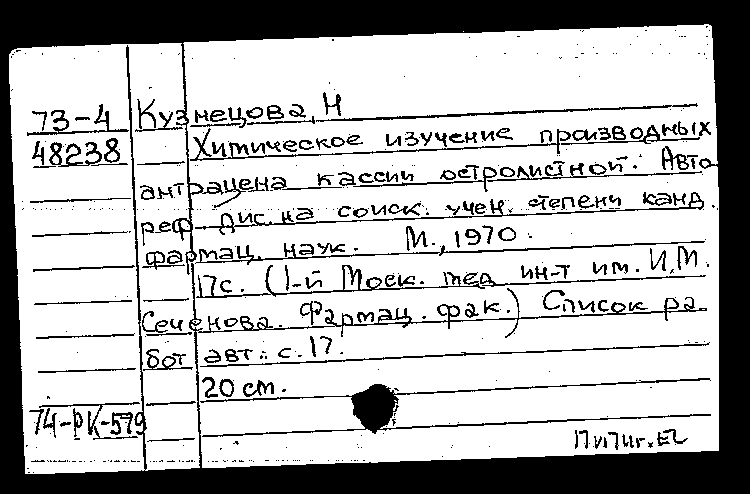 73-4 Кузнецова, Н
48238 Химическое изучение производных
антрацена кассии остролистной. Авто
реф. дис. на соиск. учен. степени канд.
фармац. наук. М., 1970.
17с. (1-й Моск. мед ин-т им. И.М.
Сеченова. Фармац. фак.) Список ра
бот авт.: с. 17.
20 см.
74-РК-579